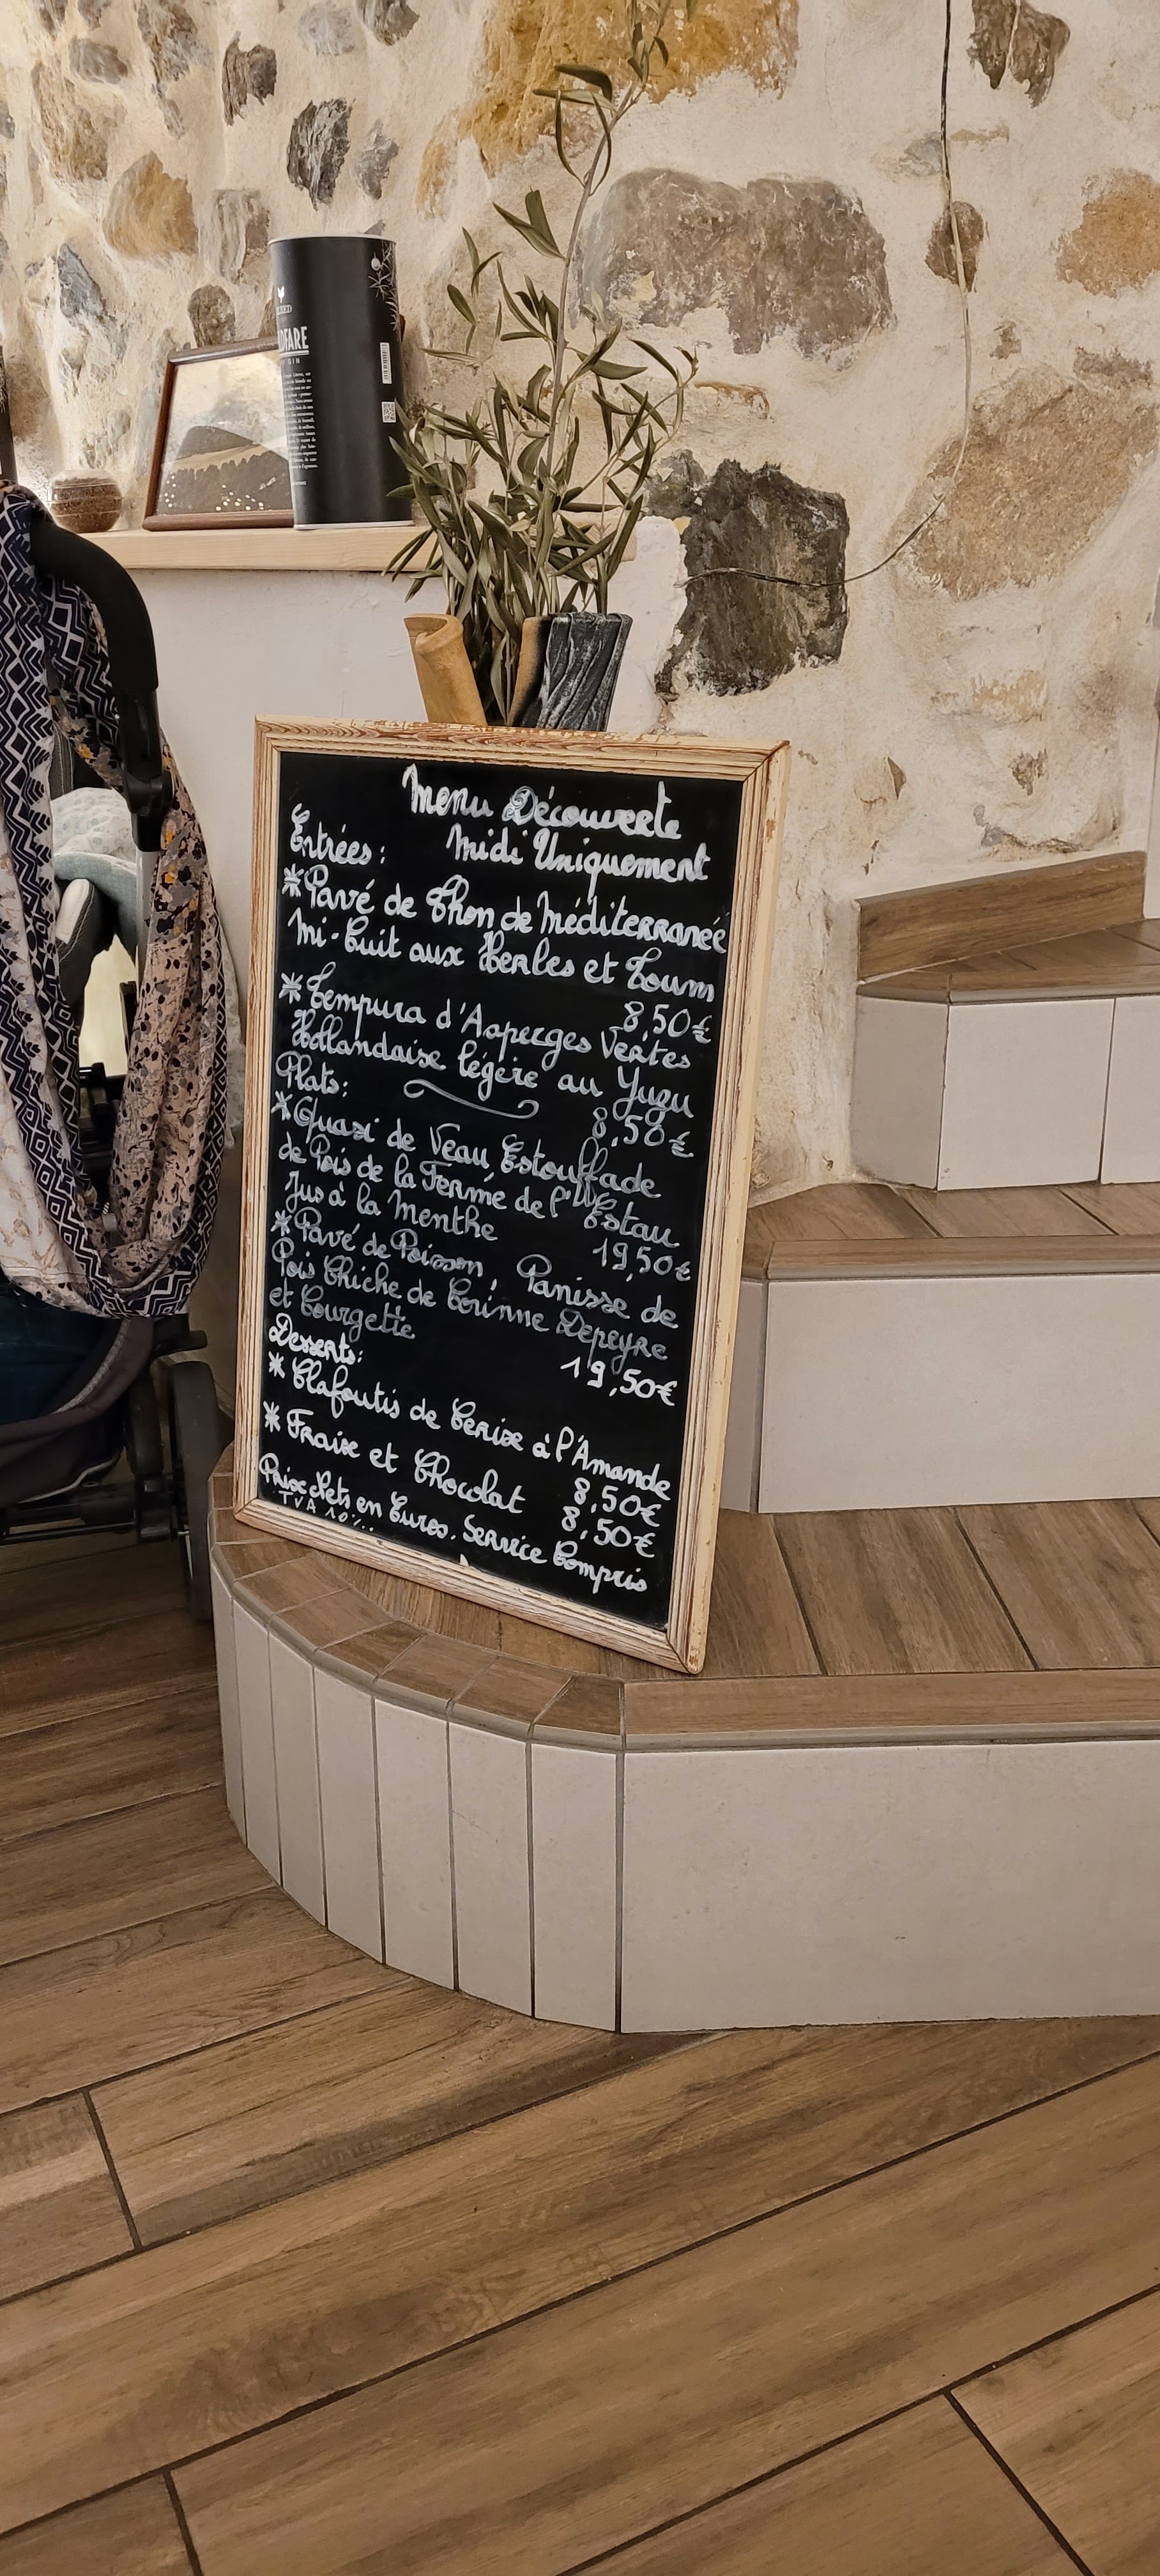 DFARE
GIN
Menu Découverte
Midi Uniquement
Entrées:
* Pavé de Thon de Méditerranée
Mi-Cuit aux Herbes et Toum
8,50€
* Tempura d'Asperges Vertes
Hollandaise légère au Yuzu
8,50€
Plats:
* Quasi de Veau, Estouffade
de Pois de la Ferme de l'Estau
Jus à la Menthe
19,50€
* Pavé de Poisson, Panisse de
Pois Chiche de Corinne Depeyre
et Courgette
19,50€
Desserts:
* Clafoutis de Cerise à l'Amande
8,50€
* Fraise et Chocolat 8,50€
Prix Nets en Euros. Service Compris
TVA 10%.